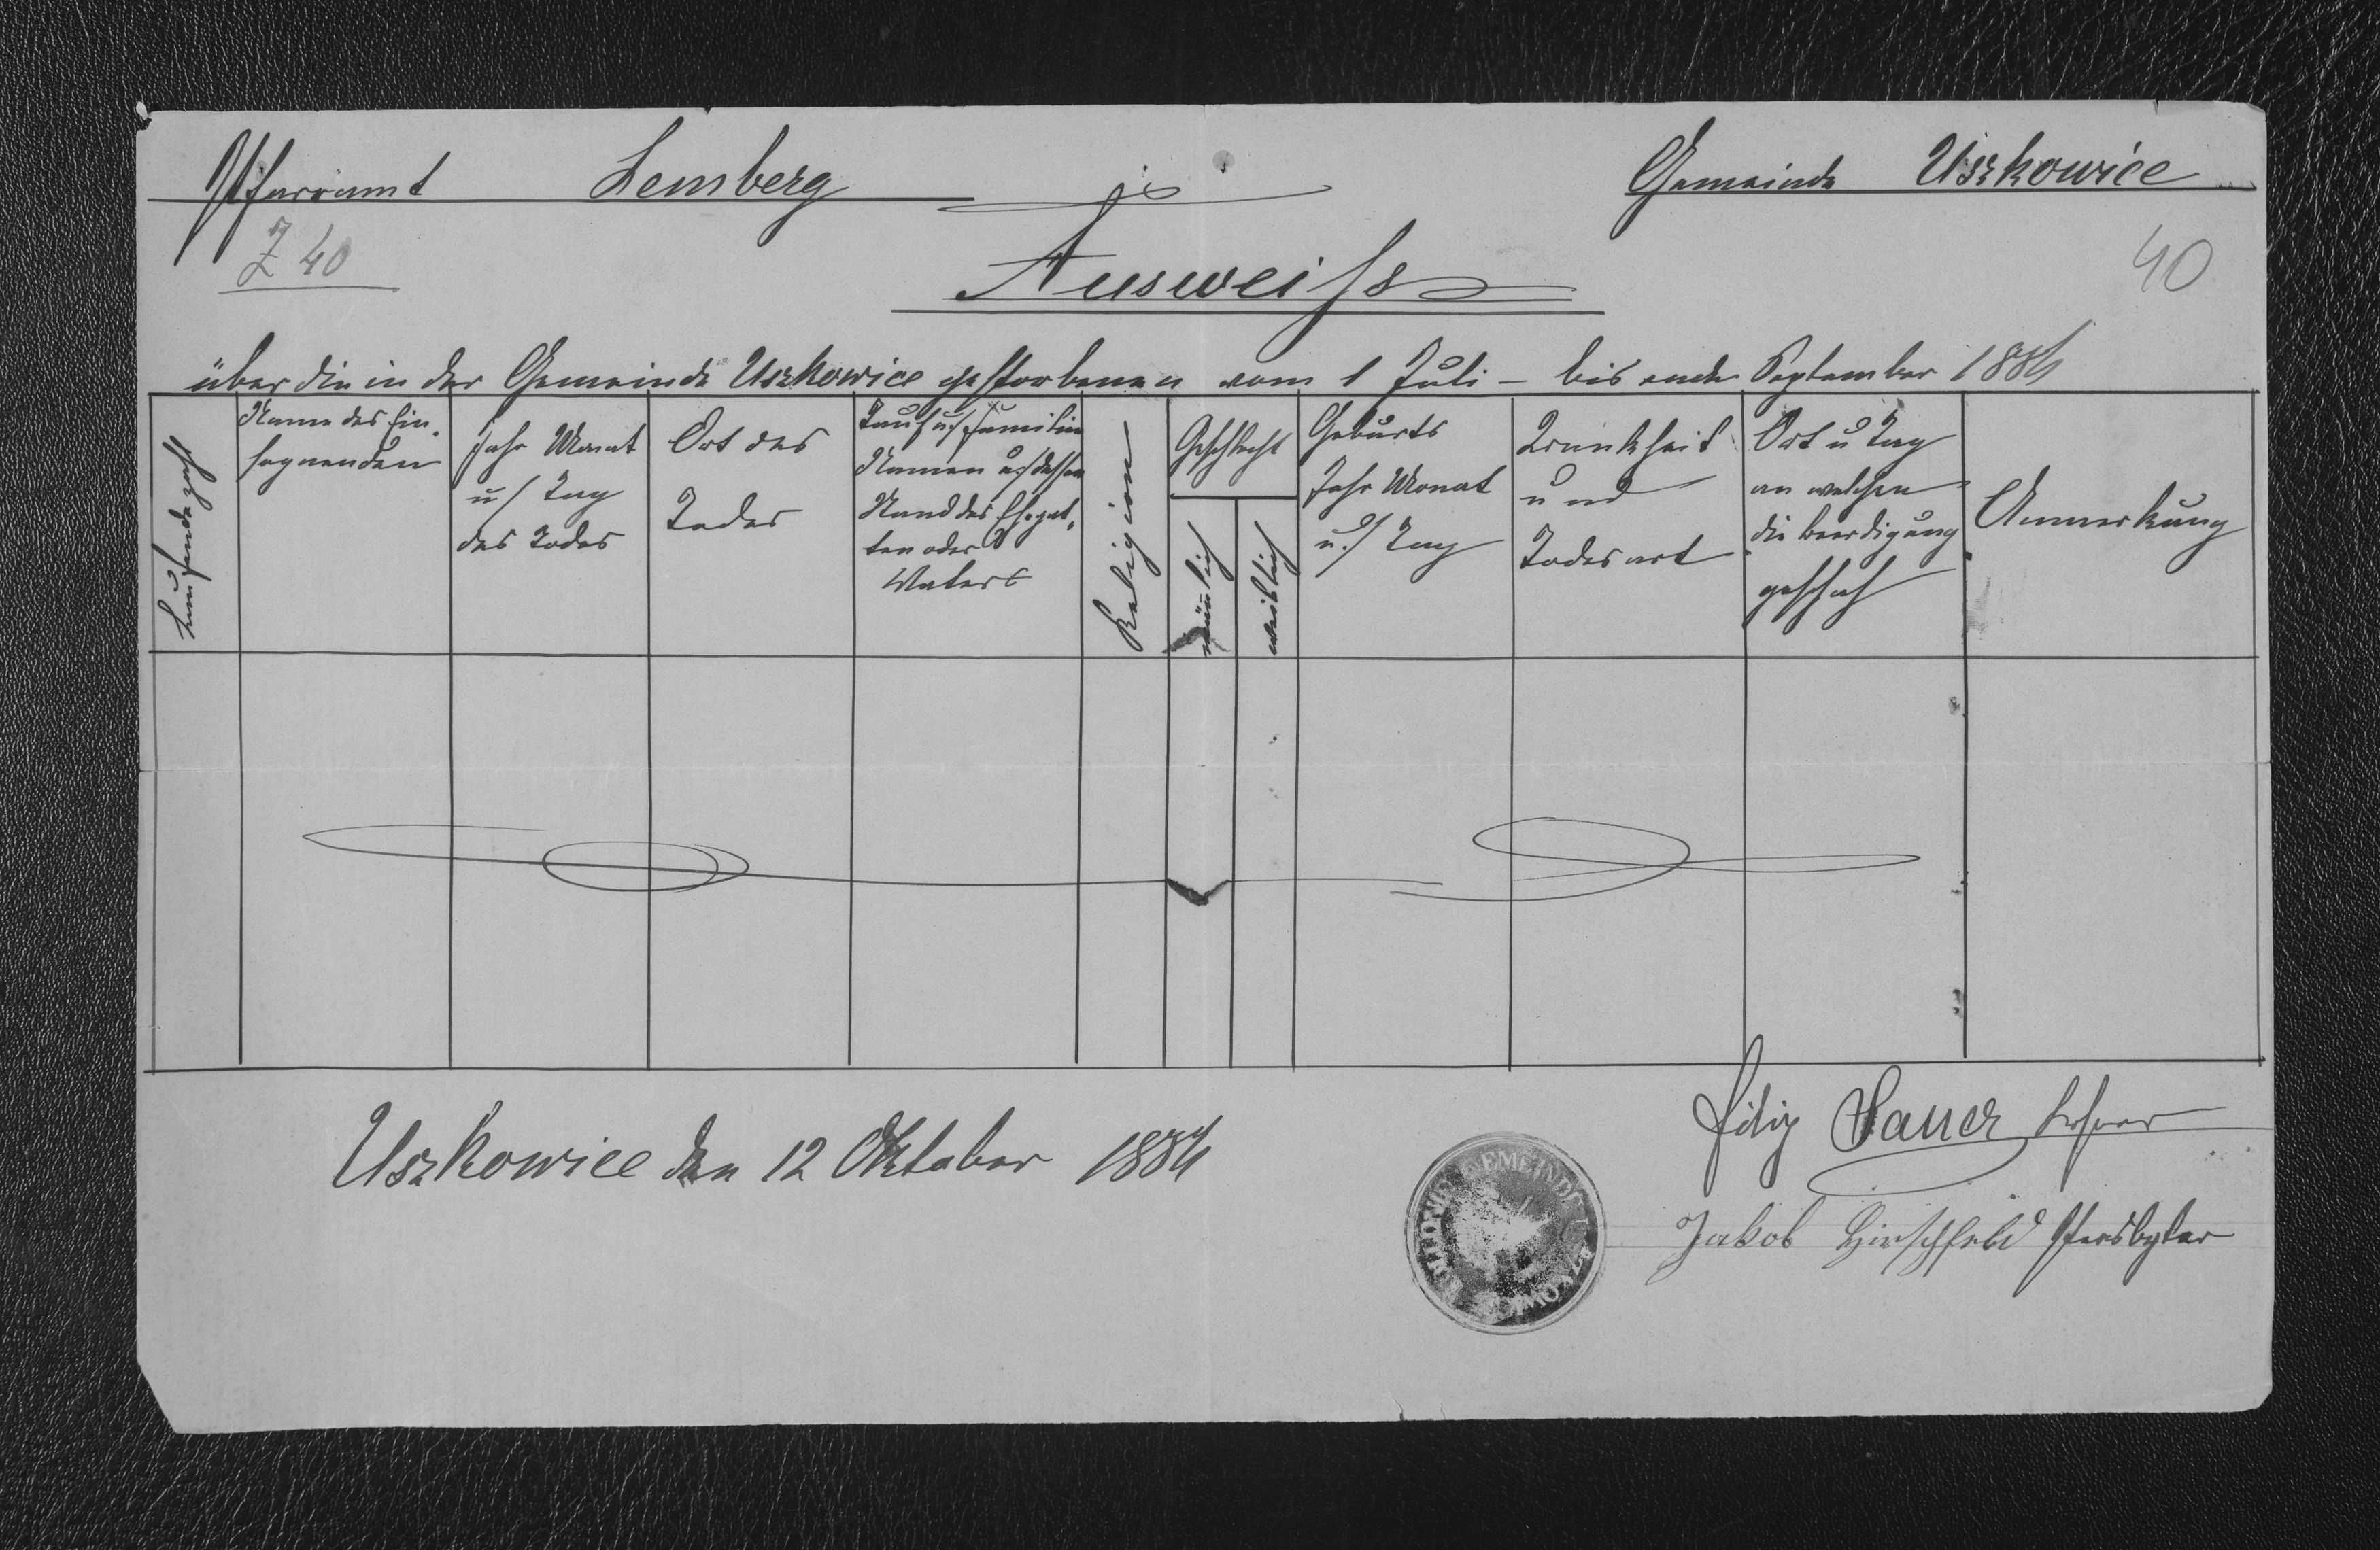 Pfarramt Lemberg
Gemeinde Uszkowice
Z 40
40
Ausweiss
über die in der Gemeinde Uszkowice gestorbenen vom 1 Juli – bis ende September 1884
Laufende zahl
Name des Ein-
segnenden
Jahr Monat
u/ Tag
des Todes
Ort des
Todes
Tauf u/ Familien
Namen u/ dessen
Stand des Ehegat-
ten oder
Vaters
Religion
Geschlecht
mänlich
weiblich
Geburts
Jahr Monat
u./ Tag
Krankheit
und
Todesart
Ort u Tag
an welchen
die beerdigung
geschah
Anmerkung
Uszkowice den 12 Oktober 1884
Filip Sauer Lehrer
Jakob Hirschfeld Presbyter
GEMEINDE USZKOWICE